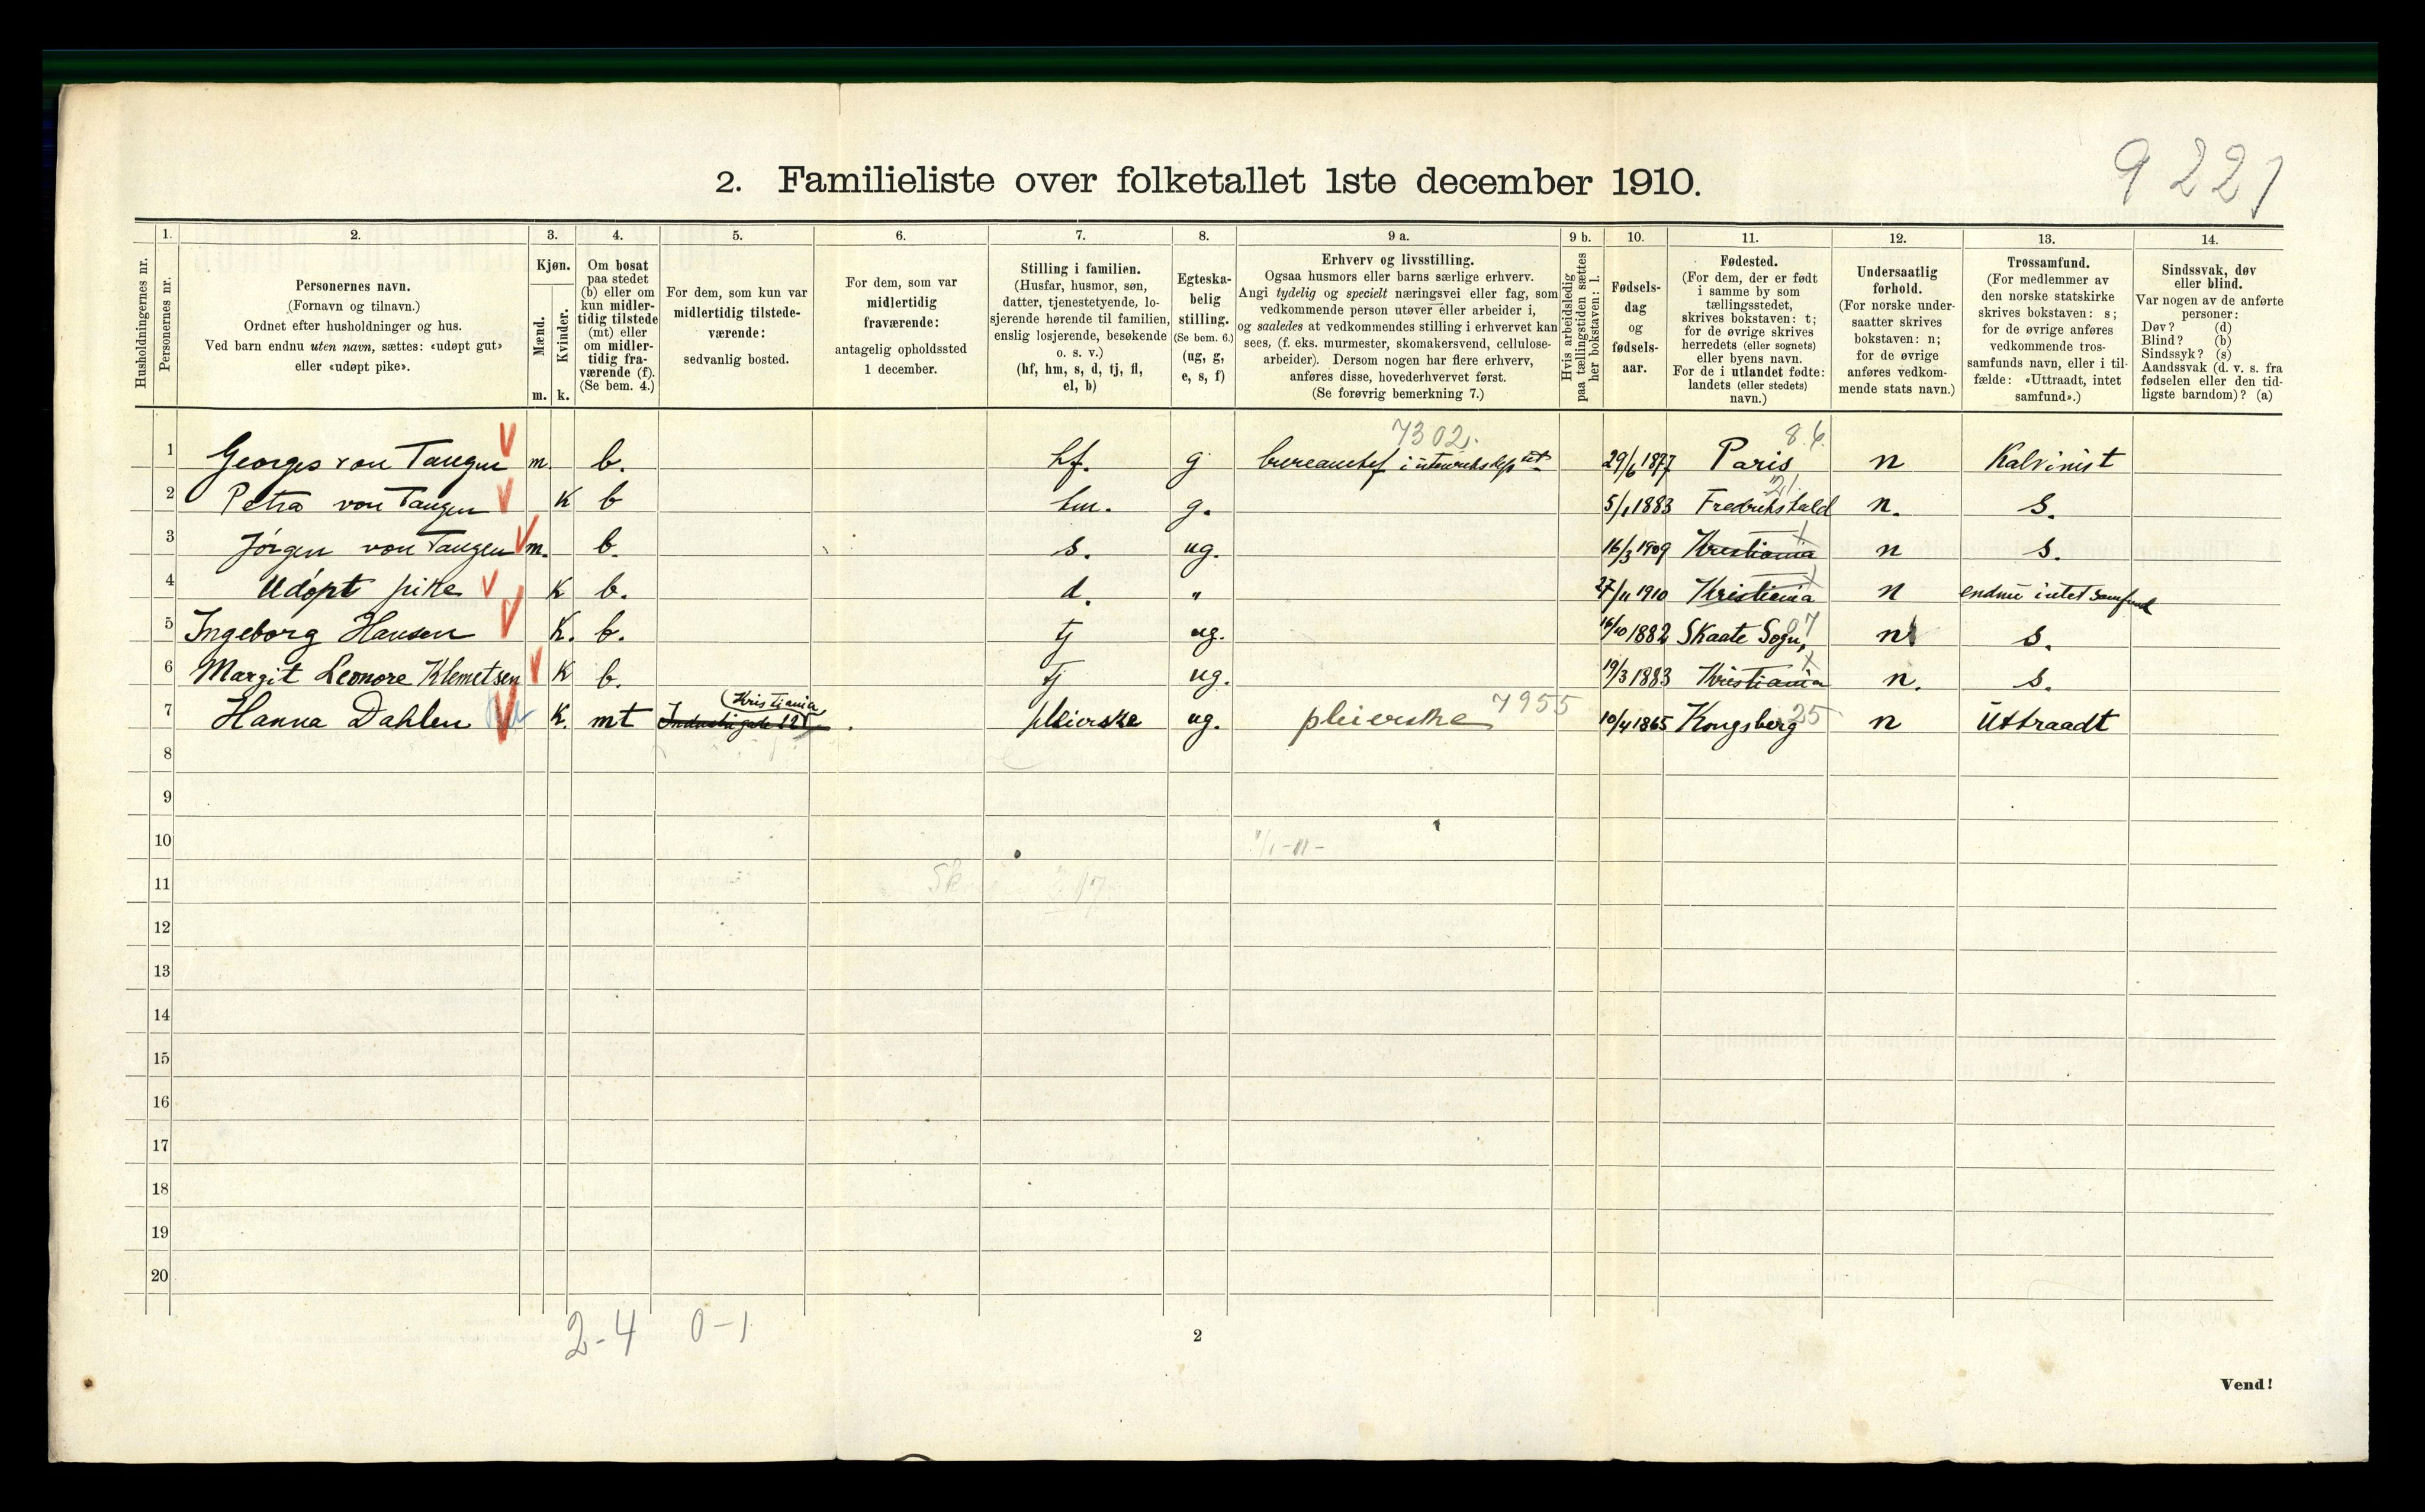 9221
2. Familieliste over folketallet 1ste december 1910.
1. 2. 3. 4. 5. 6. 7. 8. 9 a. 9 b. 10. 11. 12. 13. 14.
Husholdningernes nr.
Personernes nr.
Personernes navn.
(Fornavn og tilnavn.)
Ordnet efter husholdninger og hus.
Ved barn endnu uten navn, sættes: «udøpt gut»
eller «udøpt pike».
Kjøn.
Mænd.
Kvinder.
m. k.
Om bosat
paa stedet
(b) eller om
kun midler-
tidig tilstede
(mt) eller
om midler-
tidig fra-
værende (f).
(Se bem. 4.)
For dem, som kun var
midlertidig tilstede-
værende:
sedvanlig bosted.
For dem, som var
midlertidig
fraværende:
antagelig opholdssted
1 december.
Stilling i familien.
(Husfar, husmor, søn,
datter, tjenestetyende, lo-
sjerende hørende til familien,
enslig losjerende, besøkende
o. s. v.)
(hf, hm, s, d, tj, fl,
el, b)
Egteska-
belig
stilling.
(Se bem. 6.)
(ug, g,
e, s, f)
Erhverv og livsstilling.
Ogsaa husmors eller barns særlige erhverv.
Angi tydelig og specielt næringsvei eller fag, som
vedkommende person utøver eller arbeider i,
og saaledes at vedkommendes stilling i erhvervet kan
sees, (f. eks. murmester, skomakersvend, cellulose-
arbeider). Dersom nogen har flere erhverv,
anføres disse, hovederhvervet først.
(Se forøvrig bemerkning 7.)
Hvis arbeidsledig
paa tællingstiden sættes
her bokstaven: l.
Fødsels-
dag
og
fødsels-
aar.
Fødested.
(For dem, der er født
i samme by som
tællingsstedet,
skrives bokstaven: t;
for de øvrige skrives
herredets (eller sognets)
eller byens navn.
For de i utlandet fødte:
landets (eller stedets)
navn.)
Undersaatlig
forhold.
(For norske under-
saatter skrives
bokstaven: n;
for de øvrige
anføres vedkom-
mende stats navn.)
Trossamfund.
(For medlemmer av
den norske statskirke
skrives bokstaven: s;
for de øvrige anføres
vedkommende tros-
samfunds navn, eller i til-
fælde: «Uttraadt, intet
samfund».)
Sindssvak, døv
eller blind.
Var nogen av de anførte
personer:
Døv? (d)
Blind? (b)
Sindssyk? (s)
Aandssvak (d. v. s. fra
fødselen eller den tid-
ligste barndom)? (a)
7302. 8.6.
1 Georges von Tangen m. b. hf. g 29/6 1877 Paris n Kalvinist
21
2 Petra von Tangen K b hm. g. 5/1 1883 Fredrikshald n. s.
3 Jórgen von Tangen m. b. s. ug. 16/3 1909 Kristiania n s.
4 Udópt pike K b. d. " 27/11 1910 Kristiania n endnu intet samfund
5 Ingeborg Hansen K. b. tj ug. 16/10 1882 Skaate Sogn, 07 n s.
6 Margit Leonore Klemetsen K b. tj ug. 19/3 1883 Kristiania n. s.
Kristiania
7 Hanna Dahlen K. mt Industrigade pleierske ug. pleierske 7955 10/4 1865 Kongsberg 25 n Uttraadt
8
9
10
11
12
13
14
15
16
17
18
19
20
2-4 0-1
2
Vend!